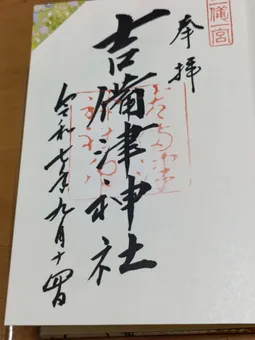 奉拝
吉備津神社
令和七年九月十四日